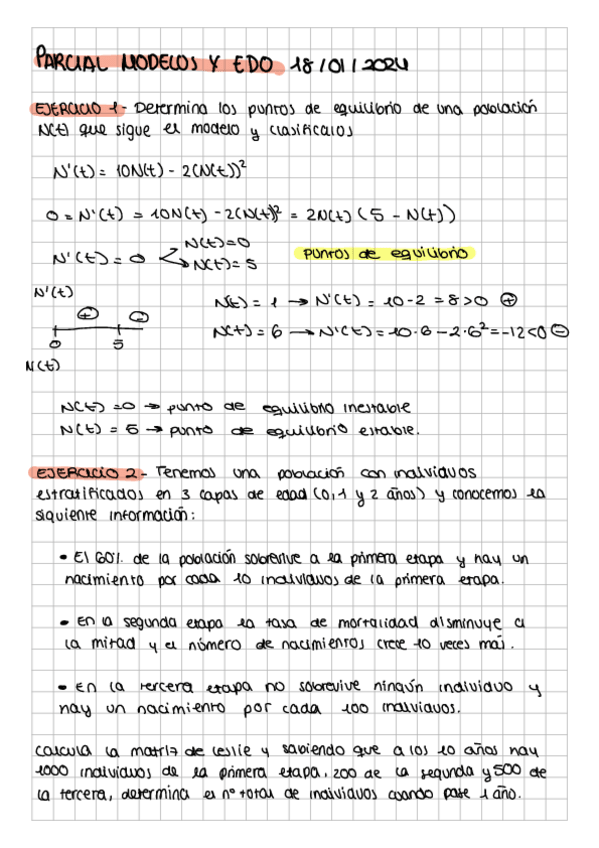 PARCIAL MODELOS Y EDO 18/01/2024
EJERCICIO 1- Determina los puntos de equilibrio de una población
N(t) que sigue el modelo y clasifícalos
N'(t) = 10N(t) - 2(N(t))²
0 = N'(t) = 10N(t) - 2(N(t))² = 2N(t) (5 - N(t))
N'(t) = 0 N(t)=0
N(t)=5
puntos de equilibrio
N'(t)
+ -
0 5
N(t)
N(t) = 1 → N'(t) = 10-2 = 8>0 ⊕
N(t) = 6 → N'(t) = 10·6 - 2·6² = -12<0 ⊖
N(t) = 0 → punto de equilibrio inestable
N(t) = 5 → punto de equilibrio estable.
EJERCICIO 2- Tenemos una población con individuos
estratificados en 3 capas de edad (0,1 y 2 años) y conocemos la
siguiente información:
• El 60% de la población sobrevive a la primera etapa y hay un
nacimiento por cada 10 individuos de la primera etapa.
• En la segunda etapa la tasa de mortalidad disminuye a
la mitad y el número de nacimientos crece 10 veces más.
• En la tercera etapa no sobrevive ningún individuo y
hay un nacimiento por cada 100 individuos.
Calcula la matriz de Leslie y sabiendo que a los 10 años hay
1000 individuos de la primera etapa, 200 de la segunda y 500 de
la tercera, determina el nº total de individuos cuando pase 1 año.